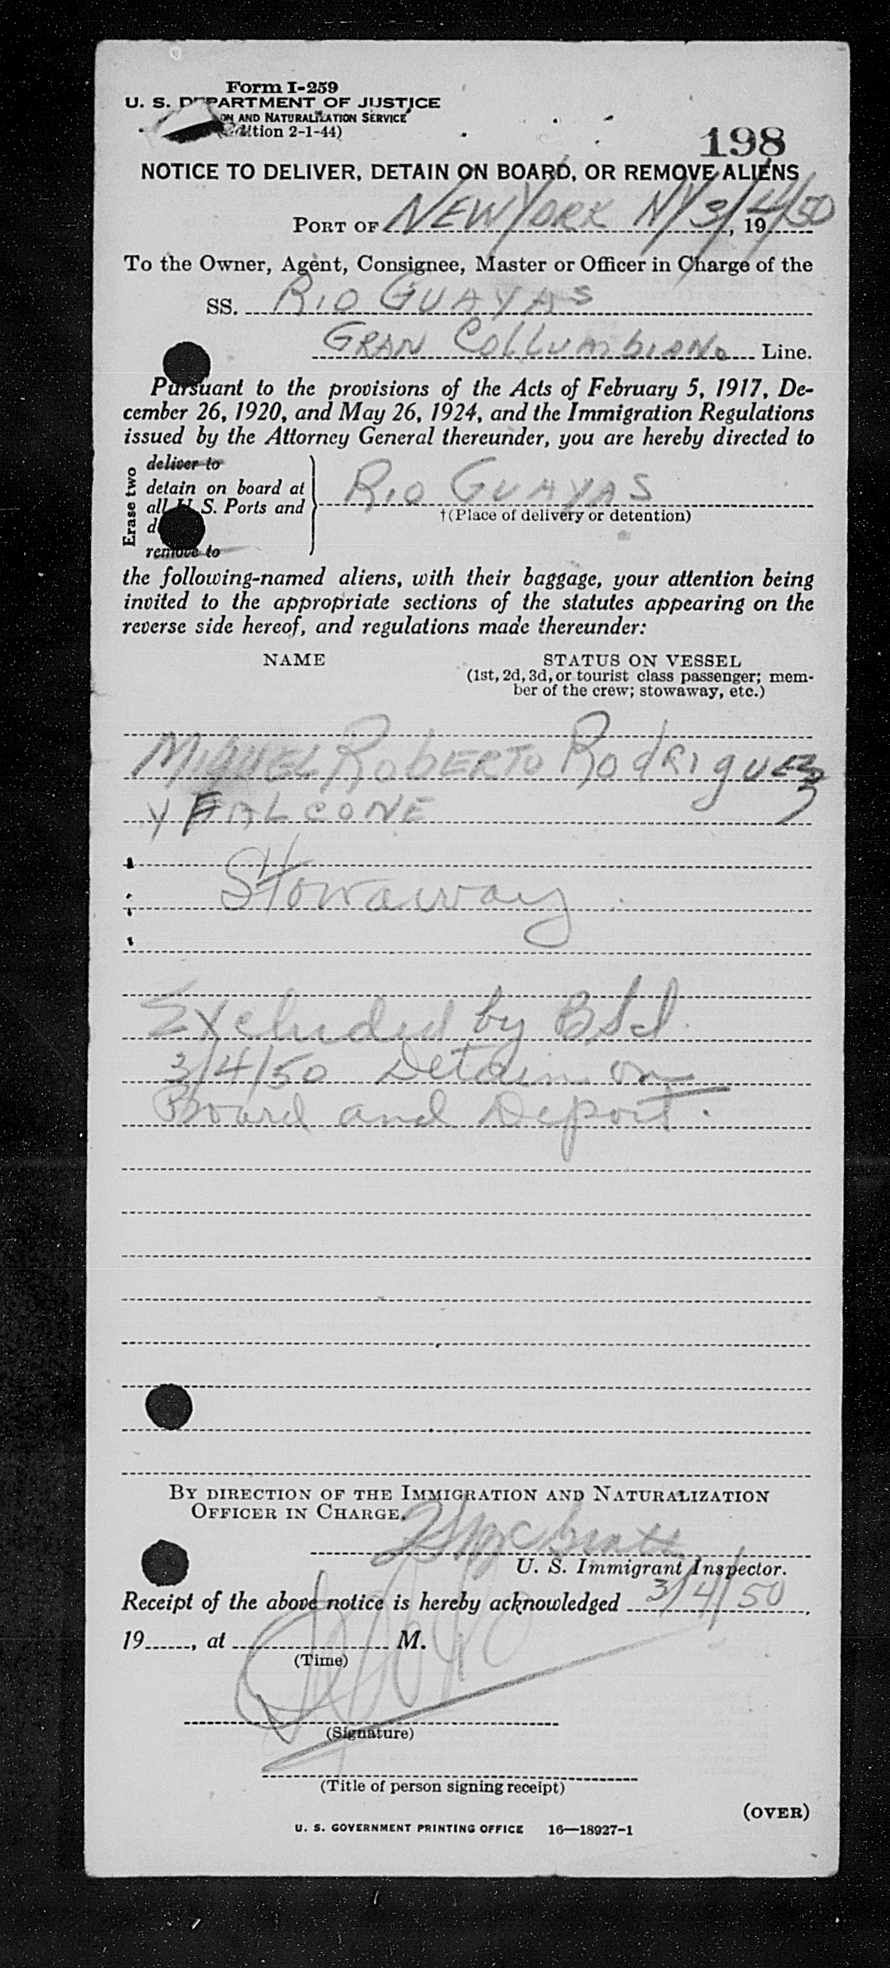 Form I-259
U. S. DEPARTMENT OF JUSTICE
ON AND NATURALIZATION SERVICE
(Edition 2-1-44)
198
NOTICE TO DELIVER, DETAIN ON BOARD, OR REMOVE ALIENS
PORT OF NEW YORK NY 3/4/50, 19
To the Owner, Agent, Consignee, Master or Officer in Charge of the
SS. RIO GUAYAS
GRAN COLLUMBIANO Line.
Pursuant to the provisions of the Acts of February 5, 1917, De-
cember 26, 1920, and May 26, 1924, and the Immigration Regulations
issued by the Attorney General thereunder, you are hereby directed to
Erase two
deliver to
detain on board at
all U. S. Ports and
remove to
RIO GUAYAS
†(Place of delivery or detention)
the following-named aliens, with their baggage, your attention being
invited to the appropriate sections of the statutes appearing on the
reverse side hereof, and regulations made thereunder:
NAME STATUS ON VESSEL
(1st, 2d, 3d, or tourist class passenger; mem-
ber of the crew; stowaway, etc.)
MIGUEL ROBERTO RODRIGUEZ
Y FALCONE
Stowaway
Excluded by BSI
3/4/50 Detain on
Board and Deport.
BY DIRECTION OF THE IMMIGRATION AND NATURALIZATION
OFFICER IN CHARGE.
U. S. Immigrant Inspector.
Receipt of the above notice is hereby acknowledged 3/4/50,
19, at M.
(Time)
(Signature)
(Title of person signing receipt)
(OVER)
U. S. GOVERNMENT PRINTING OFFICE 16—18927-1